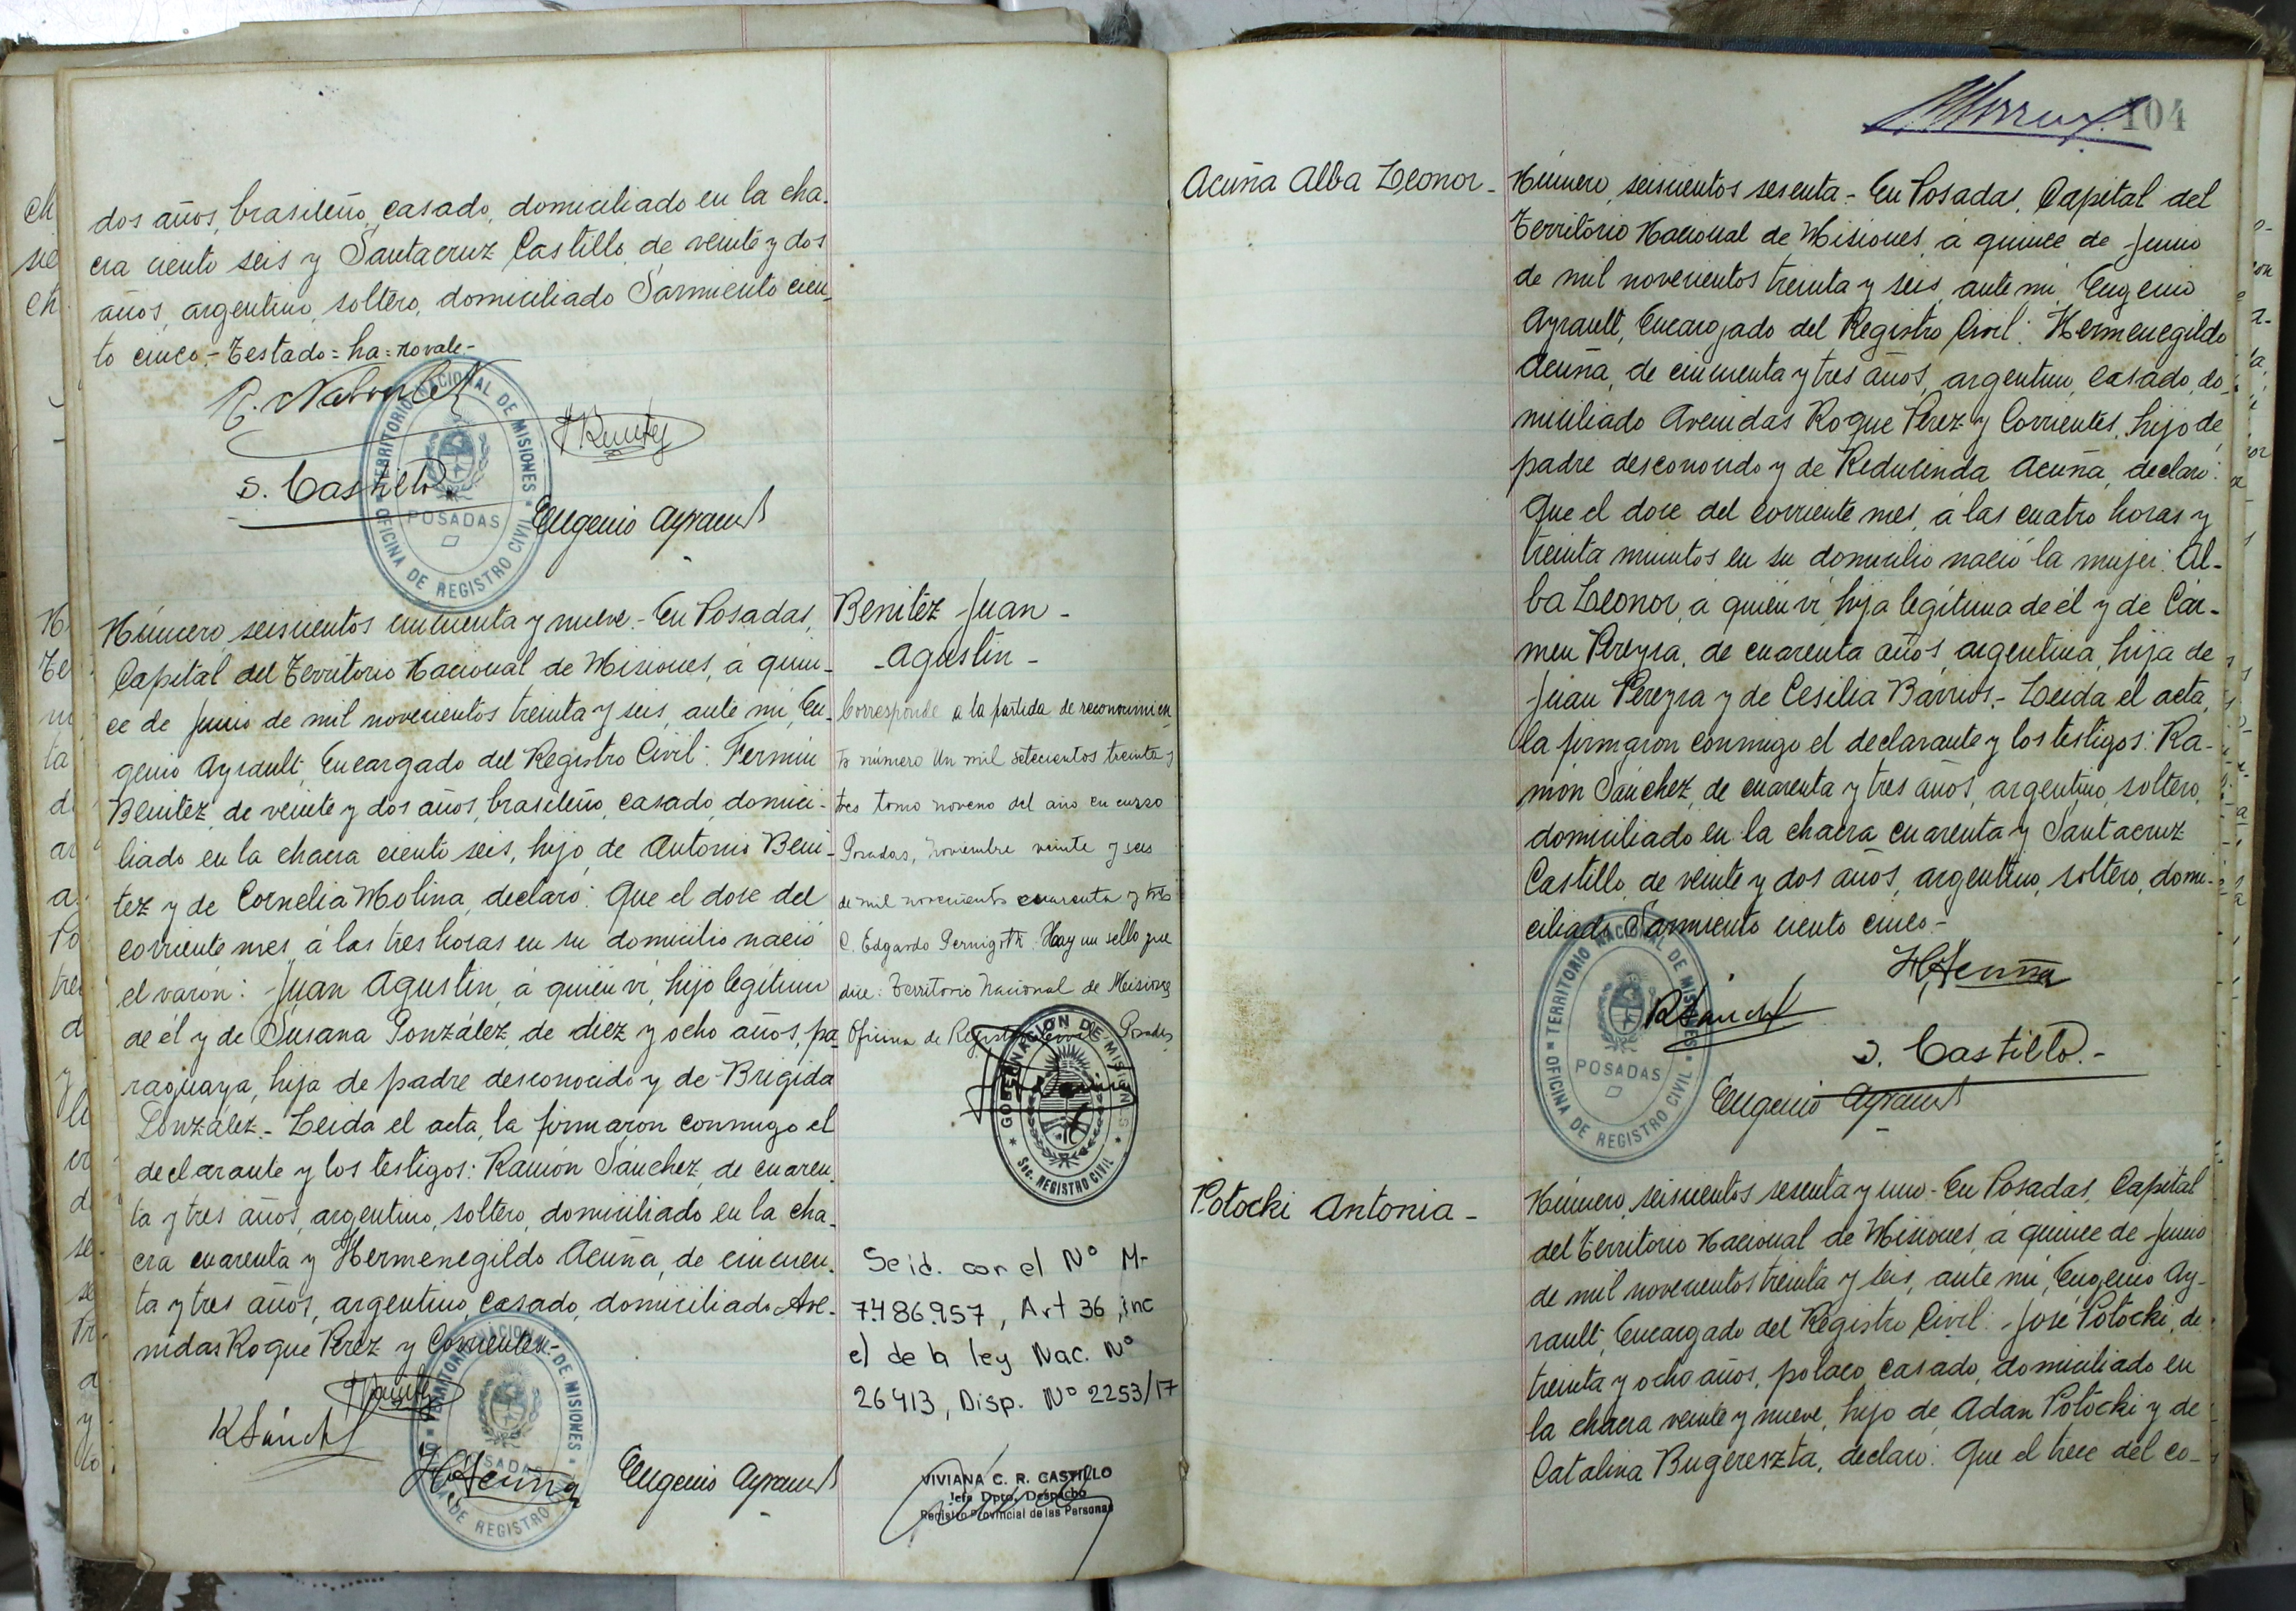 dos años, brasileño, casado, domiciliado en la cha-
cra ciento seis y Santacruz Castillo, de veinte y dos
años, argentino, soltero, domiciliado Sarmiento cien-
to cinco.- Testado = ha = no vale.-
TERRITORIO NACIONAL DE MISIONES
POSADAS
OFICINA DE REGISTRO CIVIL
S. Castillo
Eugenio Ayrault
Número, seiscientos cincuenta y nueve.- En Posadas,
Capital del Territorio Nacional de Misiones, á quin-
ce de Junio de mil novecientos treinta y seis, ante mí, Eu-
genio Ayrault, Encargado del Registro Civil: Fermin
Benitez, de veinte y dos años, brasileño, casado, domici-
liado en la chacra ciento seis, hijo de Antonio Beni-
tez y de Cornelia Molina, declaró: Que el dose del
corriente mes, á las tres horas en su domicilio nació
el varón: Juan Agustin, á quién vi, hijo legítimo
de él y de Susana González, de diez y ocho años, pa-
raguaya, hija de padre desconocido y de Brigida
González.- Leida el acta, la firmaron conmigo el
declarante y los testigos: Ramón Sánchez, de cuaren-
ta y tres años, argentino, soltero, domiciliado en la cha-
cra cuarenta y Hermenegildo Acuña, de cincuen-
ta y tres años, argentino, casado, domiciliado Ave-
nidas Roque Pérez y Corrientes.-
R Sánchez
H Acuña
Eugenio Ayrault
TERRITORIO NACIONAL DE MISIONES
POSADAS
OFICINA DE REGISTRO CIVIL
Benitez Juan -
- Agustin -
Corresponde a la partida de reconocimien
to número Un mil setecientos treinta y
tres tomo noveno del año en curso
Posadas, noviembre veinte y seis
de mil novecientos cuarenta y tres
C. Edgardo Pernigotti. Hay un sello que
dice: Territorio Nacional de Misiones
Oficina de Registro Civil Posadas
GOBERNACIÓN DE MISIONES
Sec. REGISTRO CIVIL
Se id. con el Nº M-
7.486.957, Art 36, inc
e) de la ley Nac. Nº
26413, Disp. Nº 2253/17
VIVIANA C. R. CASTILLO
Jefa Dpto. Despacho
Registro Provincial de las Personas
104
Acuña Alba Leonor -
Número, seiscientos sesenta.- En Posadas, Capital del
Territorio Nacional de Misiones, á quince de Junio
de mil novecientos treinta y seis, ante mí, Eugenio
Ayrault, Encargado del Registro Civil: Hermenegildo
Acuña, de cincuenta y tres años, argentino, casado, do-
miciliado Avenidas Roque Pérez y Corrientes, hijo de
padre desconocido y de Reducinda Acuña, declaró:
Que el dose del corriente mes, á las cuatro horas y
treinta minutos en su domicilio nació la mujer: Al-
ba Leonor, á quién vi, hija legítima de él y de Cár-
men Pereyra, de cuarenta años, argentina, hija de
Juan Pereyra y de Cesilia Barrios.- Leida el acta,
la firmaron conmigo el declarante y los testigos: Ra-
món Sánchez, de cuarenta y tres años, argentino, soltero,
domiciliado en la chacra cuarenta y Santacruz
Castillo, de veinte y dos años, argentino, soltero, domi-
ciliado Sarmiento ciento cinco.-
TERRITORIO NACIONAL DE MISIONES
POSADAS
OFICINA DE REGISTRO CIVIL
H Acuña
R Sánchez
S. Castillo.-
Eugenio Ayrault
Potocki Antonia -
Número, seiscientos sesenta y uno.- En Posadas, Capital
del Territorio Nacional de Misiones, á quince de Junio
de mil novecientos treinta y seis, ante mí, Eugenio Ay-
rault, Encargado del Registro Civil: José Potocki, de
treinta y ocho años, polaco, casado, domiciliado en
la chacra veinte y nueve, hijo de Adan Potocki y de
Catalina Bugereszta, declaró: Que el trece del co-